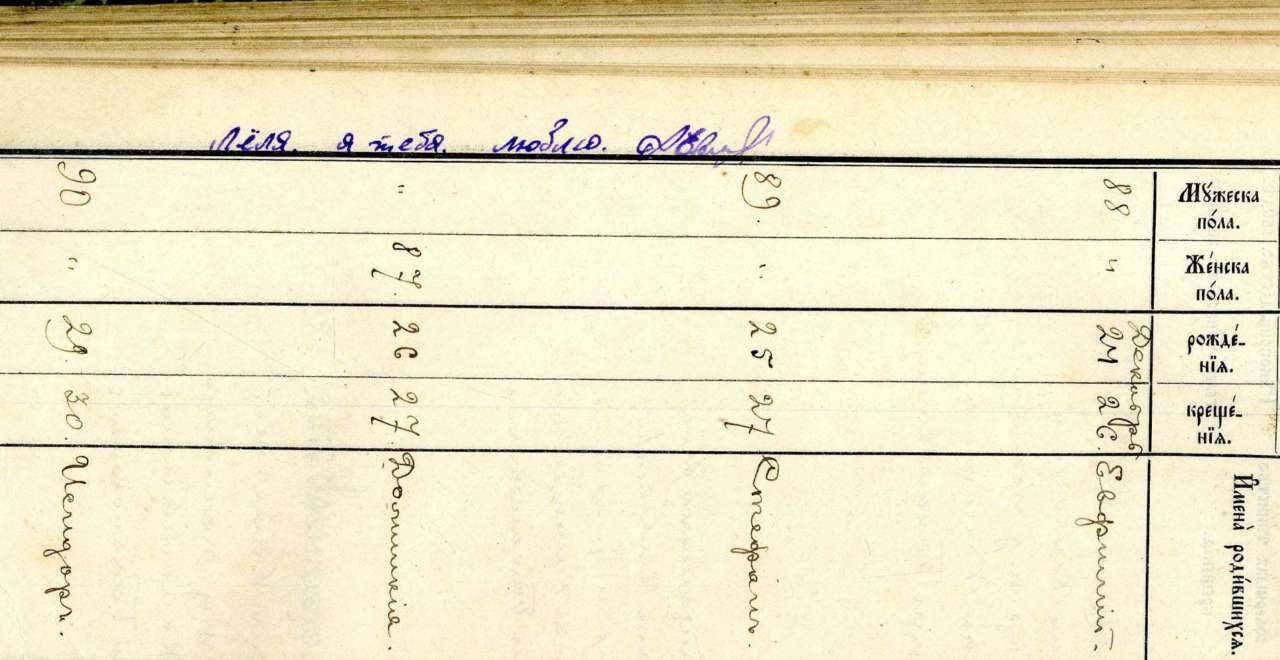 Лёля. я тебя. люблю.
Мꙋжеска пóла.
Жéнска пóла.
рождé-нїѧ.
крещé-нїѧ.
И҆менà роди́вшихсѧ.
Декабрь
88 " 24 26. Евфимій.
89. " 25 27 Стефанъ.
" 87. 26 27 Домникія.
90 " 29 30. Исидоръ.